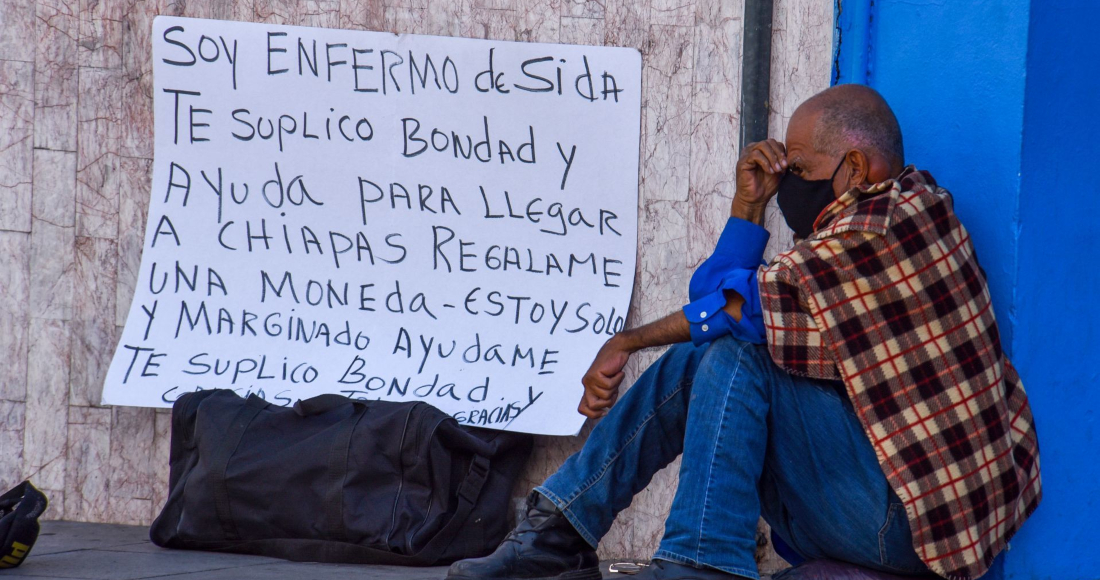 SOY ENFERMO de SidA
TE SUPLICO BONDAD Y
AYUDA PARA LLEGAR
A CHIAPAS REGALAME
UNA MONEdA-ESTOY SOLO
Y MARGINADO AYUDAME
TE SUPLICO BONDAD. Y
GRACIAS